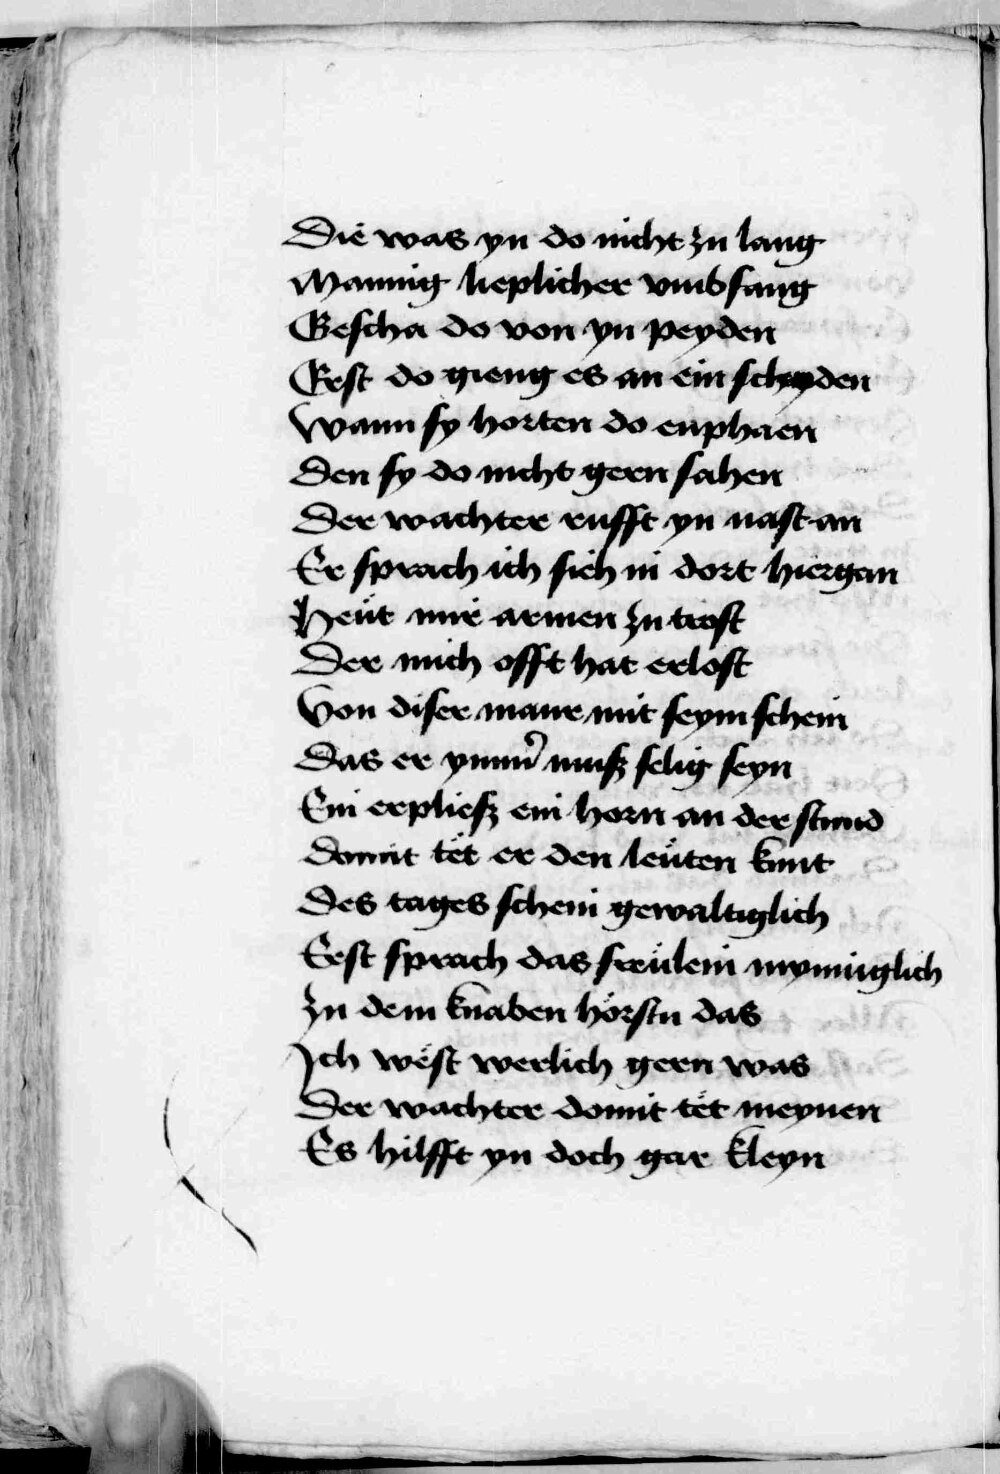 Die was yn do nicht zu lang
Mannig lieplicher vmbfang
Gescha do von yn peyden
Erst do gieng es an ein scheyden
Wann sy horten do enphaen
Den sy do nicht gern sahen
Der wachter rufft yn vast an
Er sprach ich sich in dort hiergan
Heüt mir armen zu trost
Der mich offt hat erlost
Von diser maur mit seym schein
Das er ymm̉ muß selig seyn
Ein erpließ ein horn an der stund
Domit tët er den leüten kunt
Des tages schein gewaltiglich
Erst sprach das freülein mynniglich
Zu dem knaben hörstu das
Ich wëst werlich gern was
Der wachter domit tët meynen
Es hilfft yn doch gar kleyn